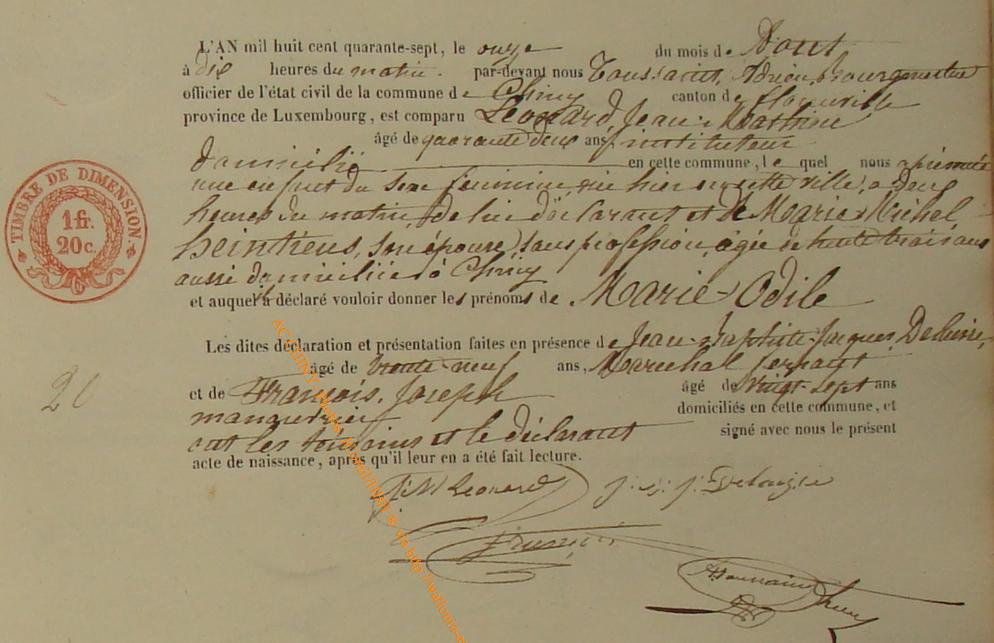 L'AN mil huit cent quarante-sept, le onze du mois de Aout
à dix heures du matin. par-devant nous Toussaint, Adrien, Bourgmestre
officier de l'état civil de la commune de Chiny canton de Florenville
province de Luxembourg, est comparu Léonard Jean-Mathieu
âgé de quarante deux ans, instituteur
domicilié en cette commune, le quel nous a présenté
une enfant du sexe féminin née hier en cette ville, a deux
heures du matin, de lui déclarant et de Marie-Michel
heintiens, son épouse, sans profession, agée de trente trois ans
aussi domiciliée à Chiny
et auquel a déclaré vouloir donner les prénoms de Marie-Odile
Les dites déclaration et présentation faites en présence de Jean-Baptiste-Jacques,
âgé de trente-neuf ans, Marechal ferrant
et de François, Joseph âgé de vingt-sept ans
domiciliés en cette commune, et
ont les témoins et le déclarant signé avec nous le présent
acte de naissance, après qu'il leur en a été fait lecture.
J. M. Leonard J. B. J.
Toussaint
TIMBRE DE DIMENSION
1 fr.
20 c.
20